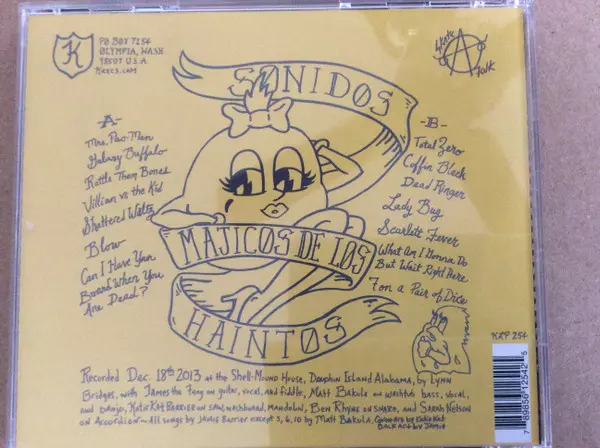 K
PO BOX 7154
OLYMPIA, WASH
98507 U.S.A.
KRECS.COM
Skate
A
folk
SONIDOS
MAJICOS DE LOS
HAINTOS
-A-
Mrs. Pac-Man
Galaxy Buffalo
Rattle Them Bones
Villian vs the Kid
Shattered Waltz
Blow
Can I Have Yer
Board When You
Are Dead?
-B-
Total Zero
Coffin Black
Dead Ringer
Lady Bug
Scarlett Fever
What Am I Gonna Do
But Wait Right Here
7 on a Pair of Dice
KRP 254
Recorded Dec. 18th 2013 at the Shell-Mound House, Dauphin Island Alabama, by Lynn
Bridges, with James the Fang on guitar, vocal, and fiddle, Matt Bakula on washtub bass, vocal,
and banjo, Katie Kat Barrier on saw, washboard, mandolin, Ben Rhyne on snare, and Sarah Nelson
on Accordion - All songs by Jamie Barrier except 5, 6, 10 by Matt Bakula. Cover art by Katie Kat
Back art by Jamie
7 89856 12542 5